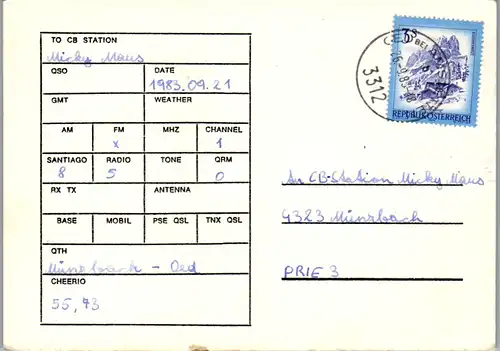 TO CB STATION
Micky Maus
QSO DATE
1983.09.21
GMT WEATHER
AM FM MHZ CHANNEL
x 1
SANTIAGO RADIO TONE QRM
8 5 0
RX TX ANTENNA
BASE MOBIL PSE QSL TNX QSL
QTH
Münzbach - Oed
CHEERIO
55, 73
3S
REPUBLIK ÖSTERREICH
3312
An CB-Station Micky Maus
4323 Münzbach
PRIE 3